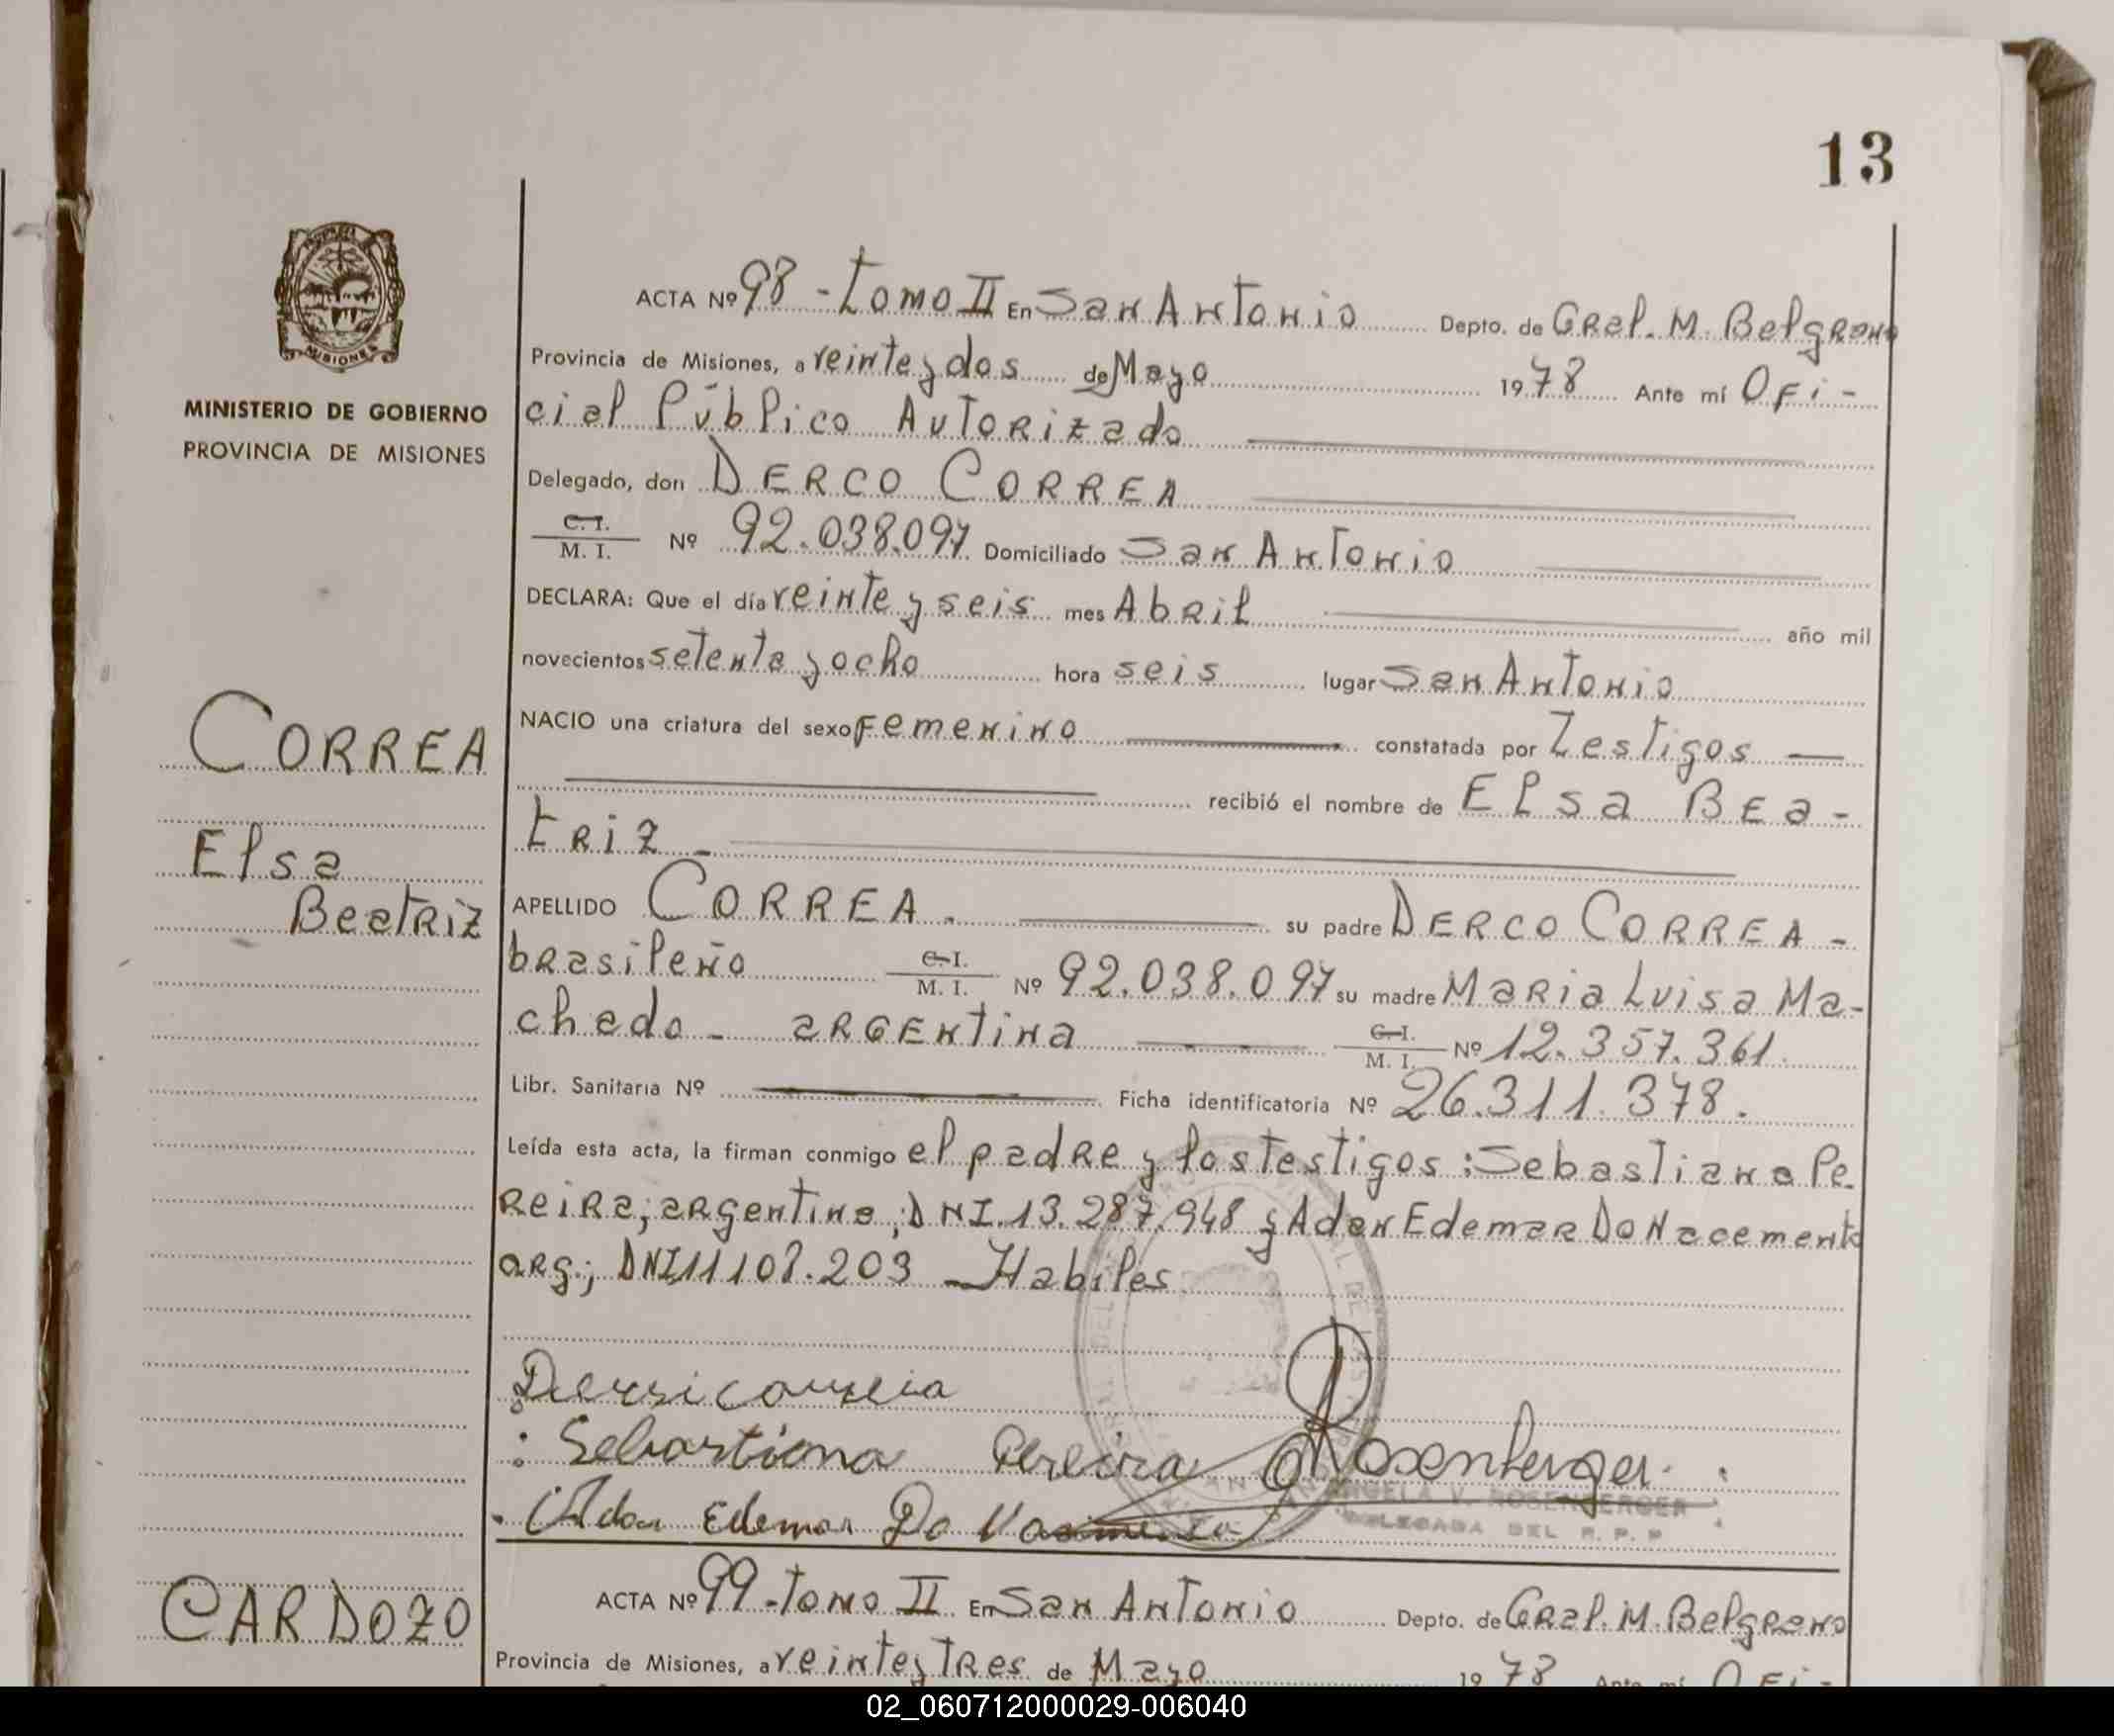 13
MINISTERIO DE GOBIERNO
PROVINCIA DE MISIONES
ACTA Nº 98 - Tomo II En San Antonio Depto. de Gral. M. Belgrano
Provincia de Misiones, a veinte y dos de Mayo 1978 Ante mí Ofi-
cial Público Autorizado
Delegado, don DERCO CORREA
C. I. / M. I. Nº 92.038.097 Domiciliado San Antonio
DECLARA: Que el día veinte y seis mes Abril año mil
novecientos setenta y ocho hora seis lugar San Antonio
CORREA
NACIO una criatura del sexo Femenino constatada por Testigos —
recibió el nombre de Elsa Bea-
Elsa
triz -
Beatriz
APELLIDO CORREA. su padre DERCO CORREA -
brasileño C. I. / M. I. Nº 92.038.097 su madre Maria Luisa Ma-
chado - argentina C. I. / M. I. Nº 12.357.361.
Libr. Sanitaria Nº Ficha identificatoria Nº 26.311.378.
Leída esta acta, la firman conmigo el padre y los testigos: Sebastiana Pe-
reira, argentina, DNI. 13.287.948 y Adan Edemar Do Nacemento
arg; DNI 11108.203 - Habiles
: Sebastiana Pereira Rosenberger.
Adan Edemar Do
ANGELA V. ROSENBERGER
DELEGADA DEL R. P. P.
CARDOZO
ACTA Nº 99 - Tomo II En San Antonio Depto. de Gral. M. Belgrano
Provincia de Misiones, a veinte y Tres de Mayo 1978 Ante mí Ofi-
02_060712000029-006040